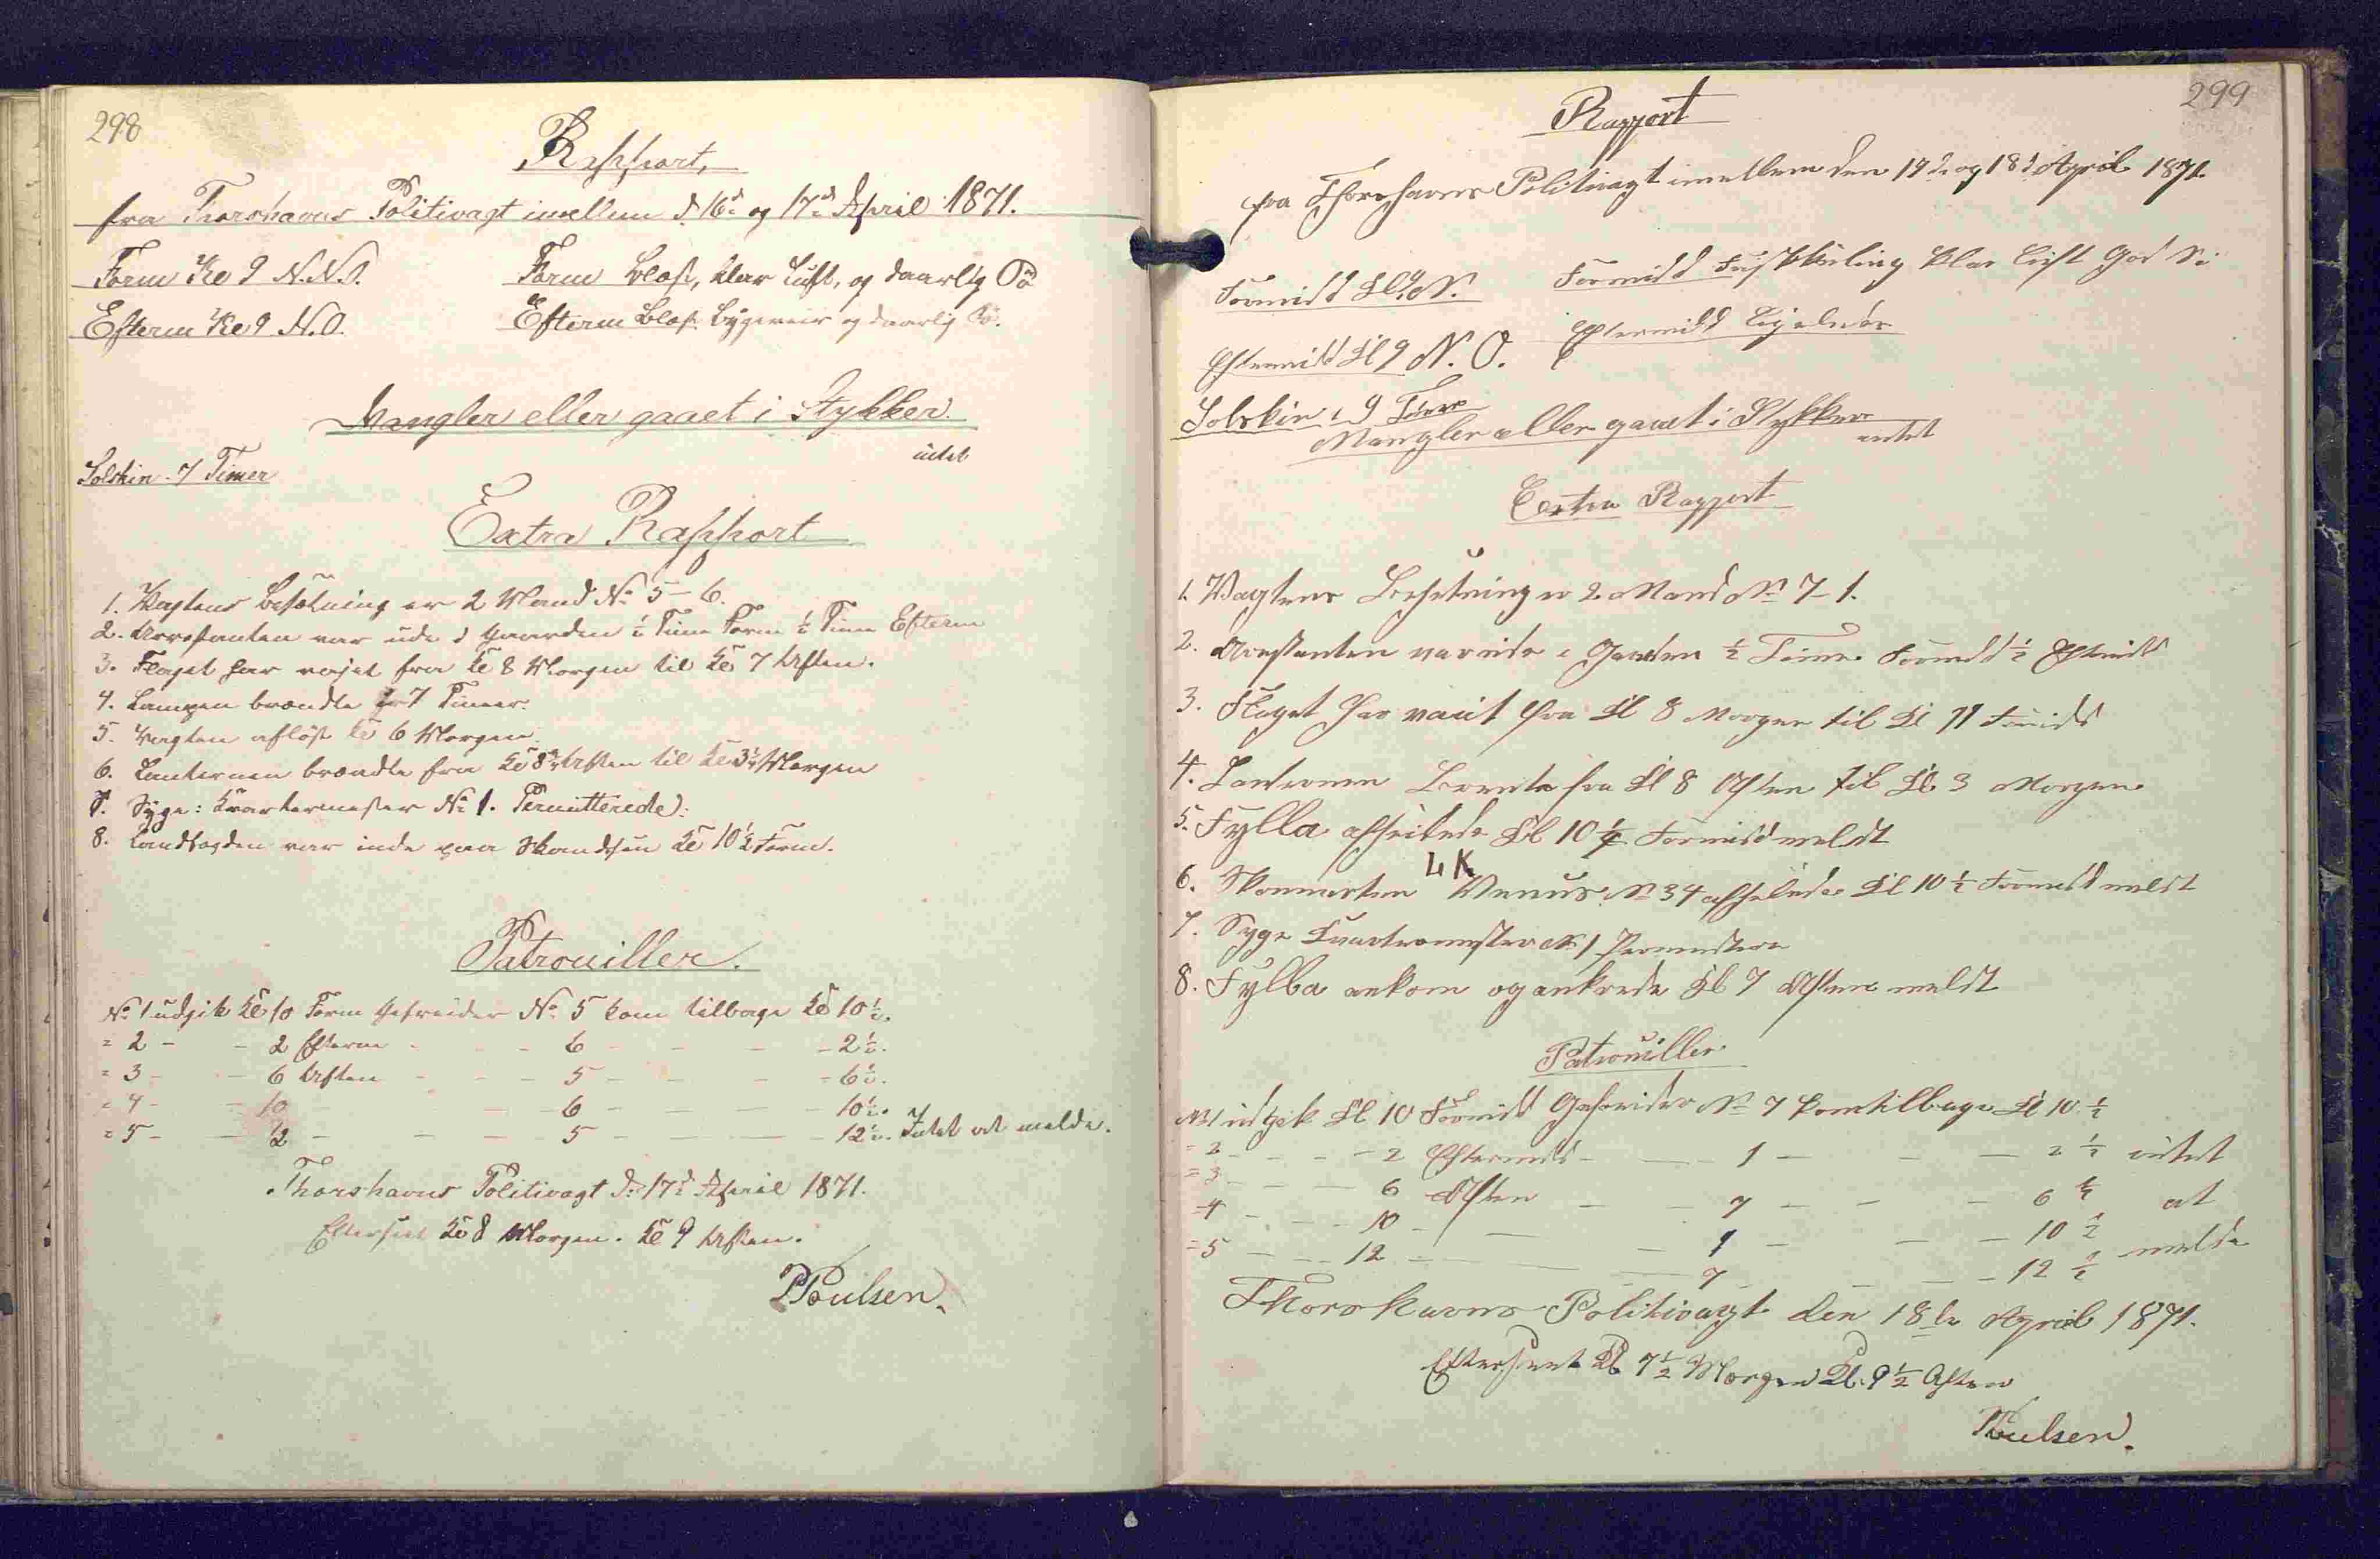 298
Rapport,
fra Thorshavns Politivagt imellem d 16d og 17d April 1871.
Form Kl 9 N.N.O. Form Blæst, klar Luft, og daarlig Sö
Efterm Kl 9 N.O. Efterm Blæst Bygeveir og daarlig Sö.
Mangler eller gaaet i Stykker
intet
Solskin 7 Timer
Extra Rapport
1. Vagtens Besætning er 2 Mand No 5 - 6.
2. Arrestanten var ude i Gaarden ½ Time Form ½ Time Efterm
3. Flaget har vajet fra Kl 8 Morgen til Kl 7 Aften.
4. Lampen brændte i 7 Timer.
5. Vagten aflöst Kl 6 Morgen.
6. Lanternen brændte fra Kl 8¼ Aften til Kl 3¼ Morgen
7. Syge: Kvartermester No 1. Permitterede:
8. Landfogden var inde paa Skandsen Kl 10½ Form.
Patrouiller.
No 1 udgik Kl 10 Form Gefreider No 5 kom tilbage Kl 10½.
= 2 - - 2 Efterm - - - 6 - - - - 2½.
= 3 - - 6 Aften - - - 5 - - - - 6½.
= 4 - - 10 - - 6 - - - - 10½.
= 5 - - 12 - - - 5 - - - - 12½. Intet at melde.
Thorshavns Politivagt d. 17d April 1871.
Efterseet Kl 8 Morgen. Kl 9 Aften.
PPoulsen.
299
Rapport
fra Thorshavns Politivagt imellem den 17d og 18d April 1871.
Formidd Kl 9 N. Formidd Friskkuling klar Luft God Sö
Eftermidd Kl 9 N. O. Eftermidd Ligeledes
Solskin i 9 Timer
Mangler eller gaaet i Stykker
intet
Extra Rapport
1. Vagtens Besetning er 2 Mand No 7 - 1.
2. Arestanten var ude i Gaarden ½ Time Formidd ½ Eftmidd
3. Flaget har vaiet fra Kl 8 Morgen til Kl 7
4. Lanternen Brente fra Kl 8 Aften til Kl 3 Morgen
5. Fylla afseilede Kl 10¼ Formidd meldt
LK
6. Skonnerten Venus No 34 afseilede Kl 10½ Formidd meldt
7. Syge Kvartermester No 1
8. Fylla ankom og ankrede Kl 7 Aften meldt
Patrouiller
No 1 udgik Kl 10 Formidd Gefreider No 7 kom tilbage Kl 10½
= 2 - - - - 2 Eftermidd - - - 1 - - - 2½ intet
= 3 - - - 6 Aften - - 7 - - - 6½ at
= 4 - - - 10 - - - 1 - - - 10½ melde
= 5 - - - 12 - - - 7 - - - 12½
Thorshavns Politivagt den 18de April 1871.
Efterseet Kl 7½ Morgen Kl. 9½ Aften
PPoulsen.